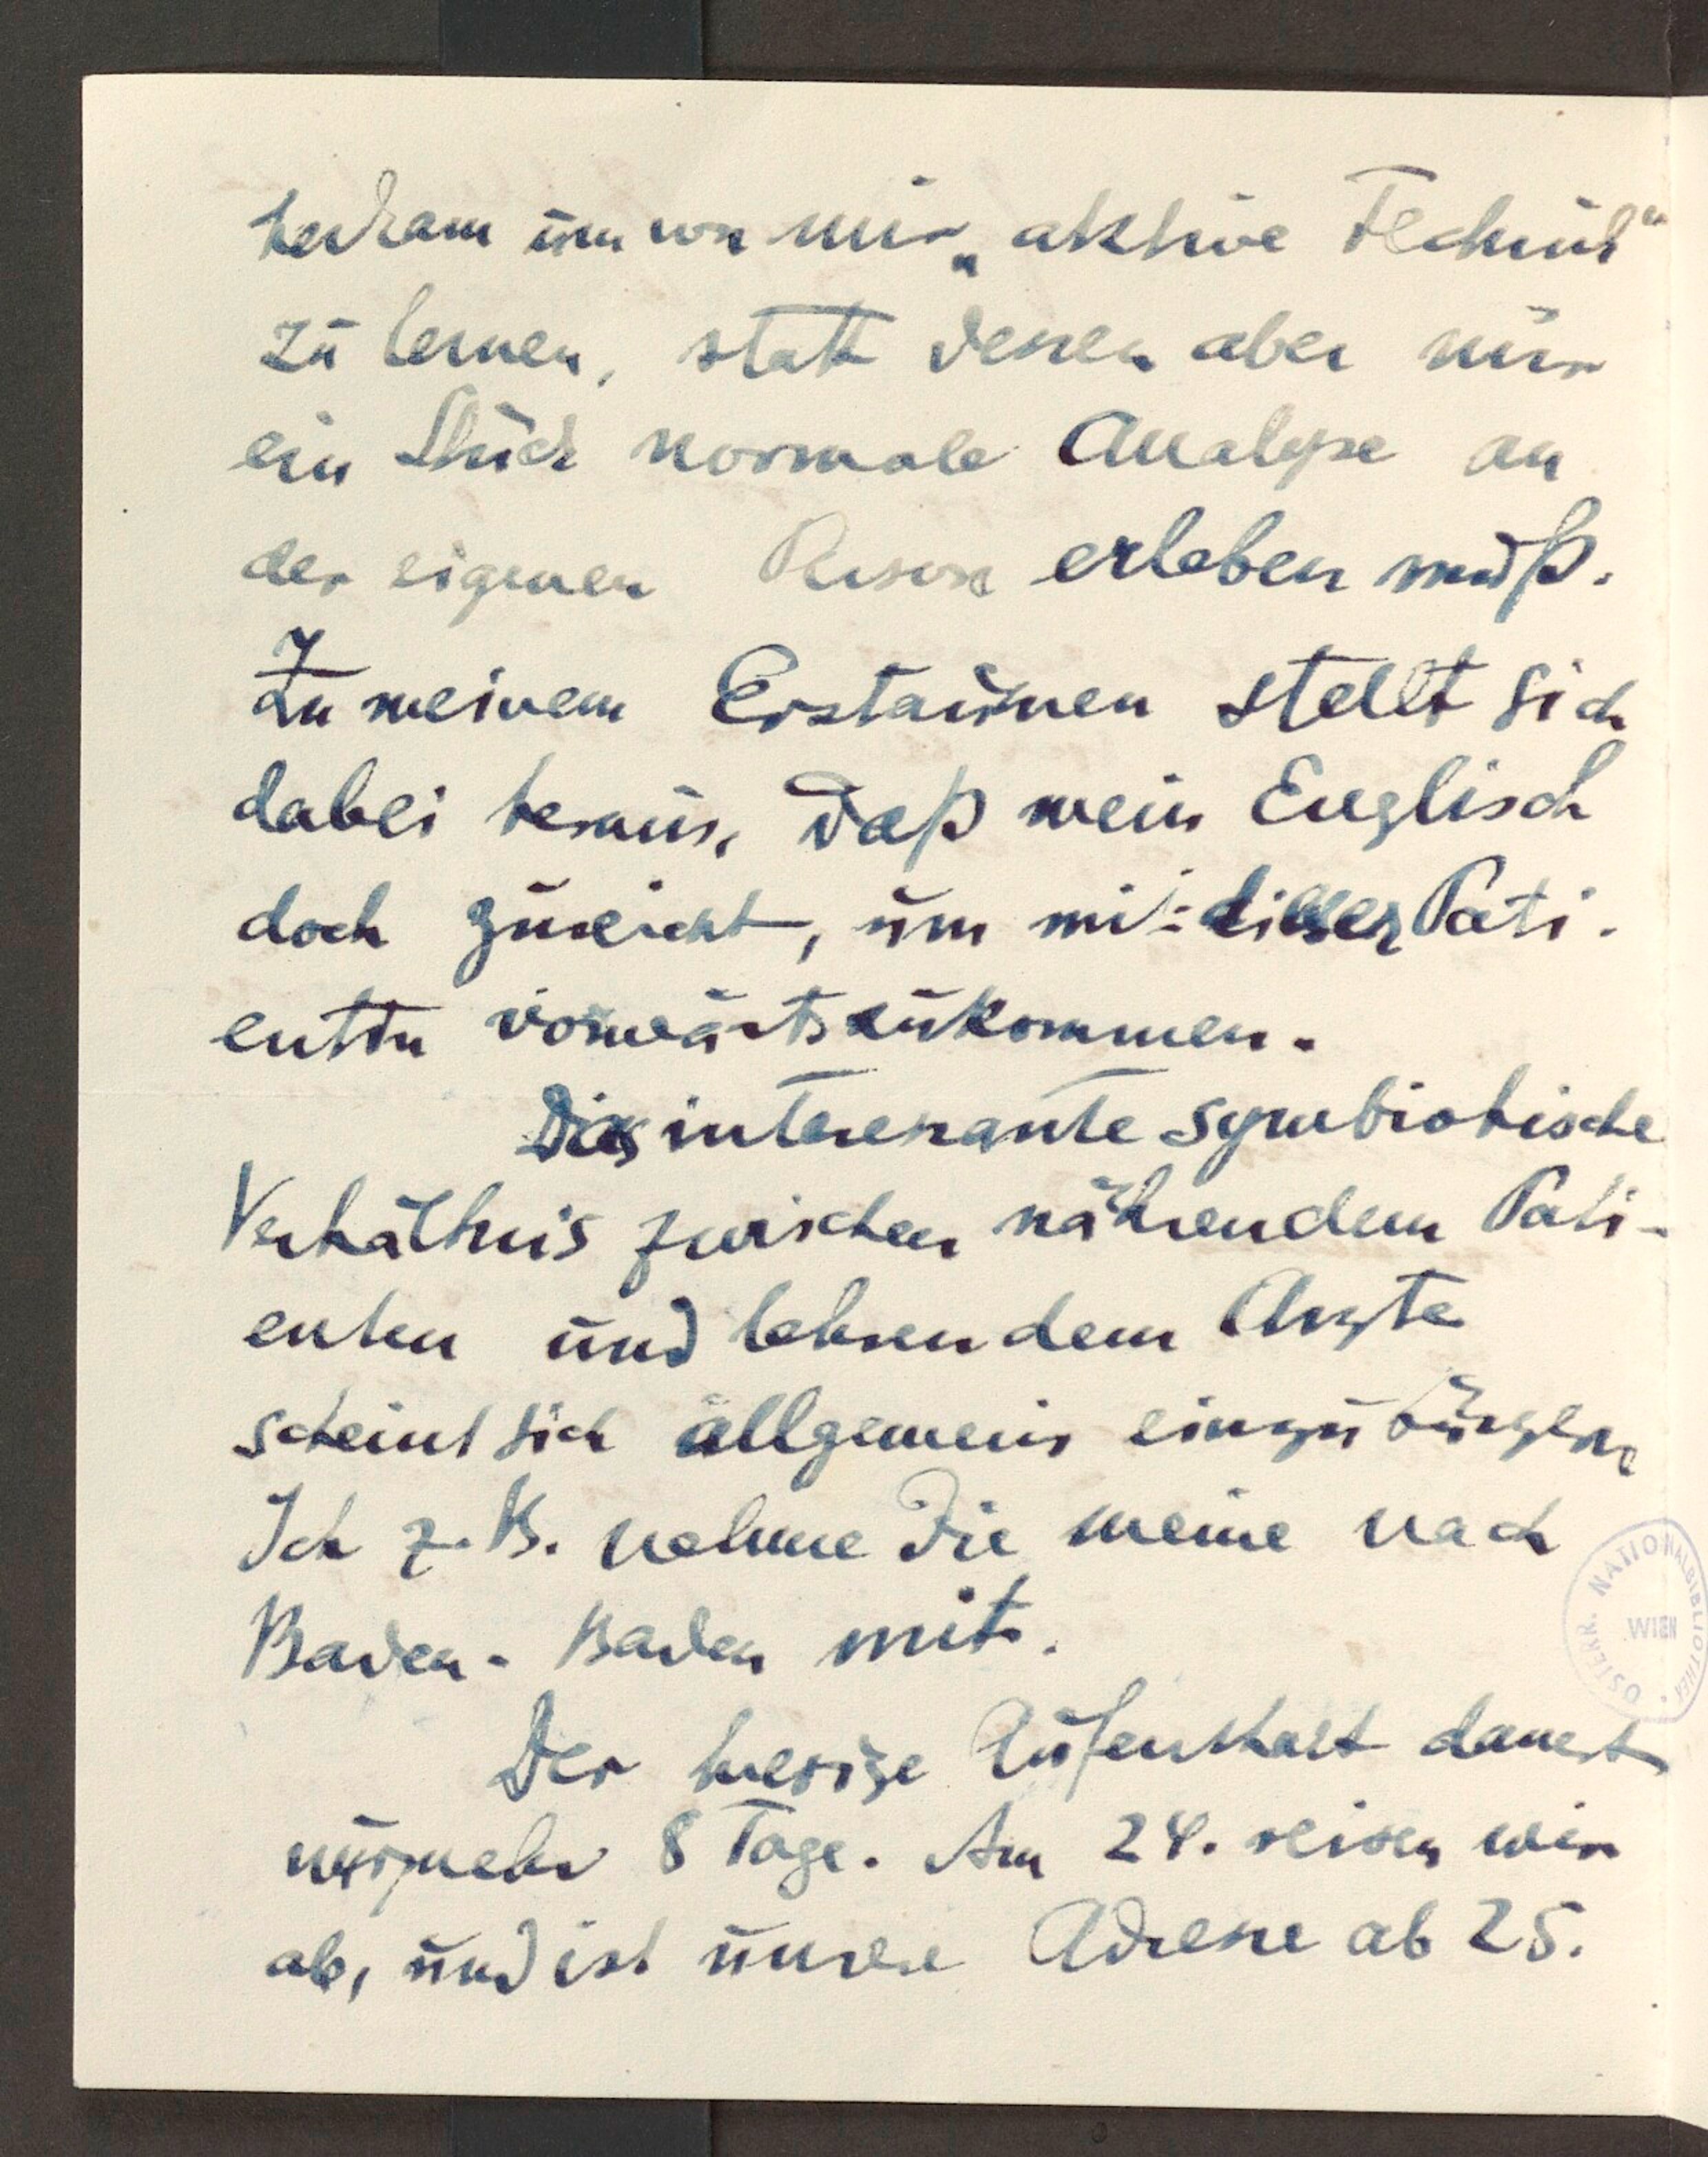 herkam um von mir „aktive Technik“
zu lernen, statt dessen aber nur
ein Stück normale Analyse an
der eigenen Person erleben muß.
Zu meinem Erstaunen stellt sich
dabei heraus, daß mein Englisch
doch zureicht, um mit dieser Pati-
entin vorwärtszukommen.
Das interessante symbiotische
Verhältnis zwischen nährendem Pati-
enten und lehrendem Arzte
scheint sich allgemein einzubürgern
Ich z. B. nehme die meine nach
Baden-Baden mit.
Der hiesige Aufenthalt dauert
nurmehr 8 Tage. Am 24. reisen wir
ab, und ist unsere Adresse ab 25.
ÖSTERR. NATIONALBIBLIOTHEK
WIEN